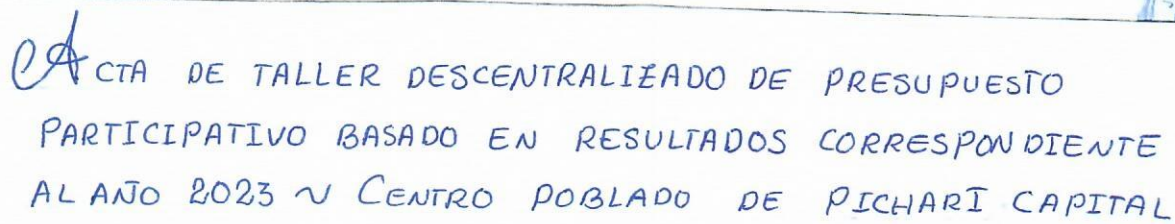 ACTA DE TALLER DESCENTRALIZADO DE PRESUPUESTO
PARTICIPATIVO BASADO EN RESULTADOS CORRESPONDIENTE
AL AÑO 2023 ~ CENTRO POBLADO DE PICHARI CAPITAL